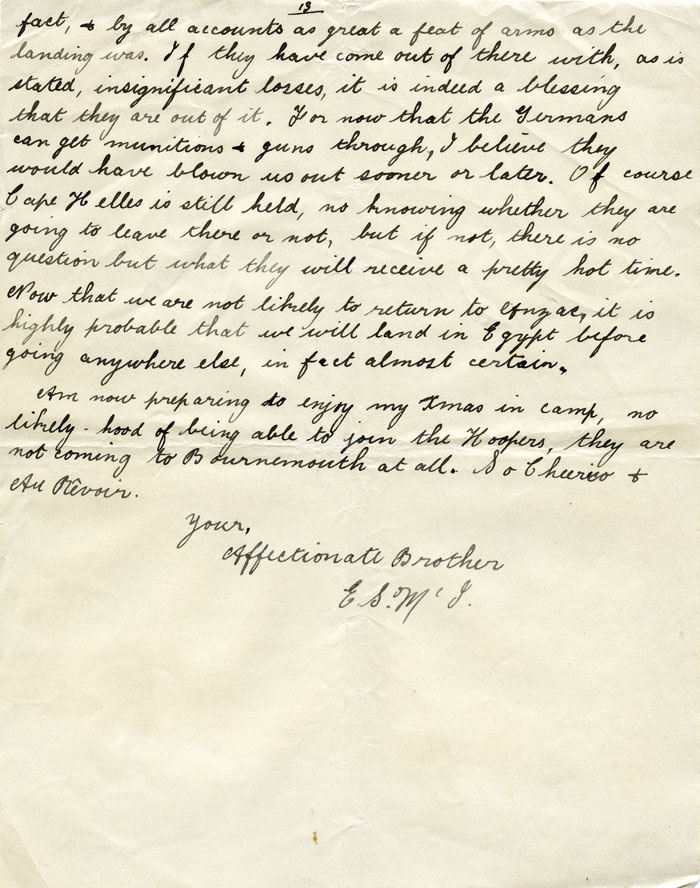 13
fact, & by all accounts as great a feat of arms as the
landing was. If they have come out of there with, as is
stated, insignificant losses, it is indeed a blessing
that they are out of it. For now that the Germans
can get munitions & guns through, I believe they
would have blown us out sooner or later. Of course
Cape Helles is still held, no knowing whether they are
going to leave there or not, but if not, there is no
question but what they will receive a pretty hot time.
Now that we are not likely to return to Anzac, it is
highly probable that we will land in Egypt before
going anywhere else, in fact almost certain.
Am now preparing to enjoy my Xmas in camp, no
likely-hood of being able to join the Hoopers, they are
not coming to Bournemouth at all. So Cheerio &
Au Rêvoir.
Your,
Affectionate Brother
E S. McI.